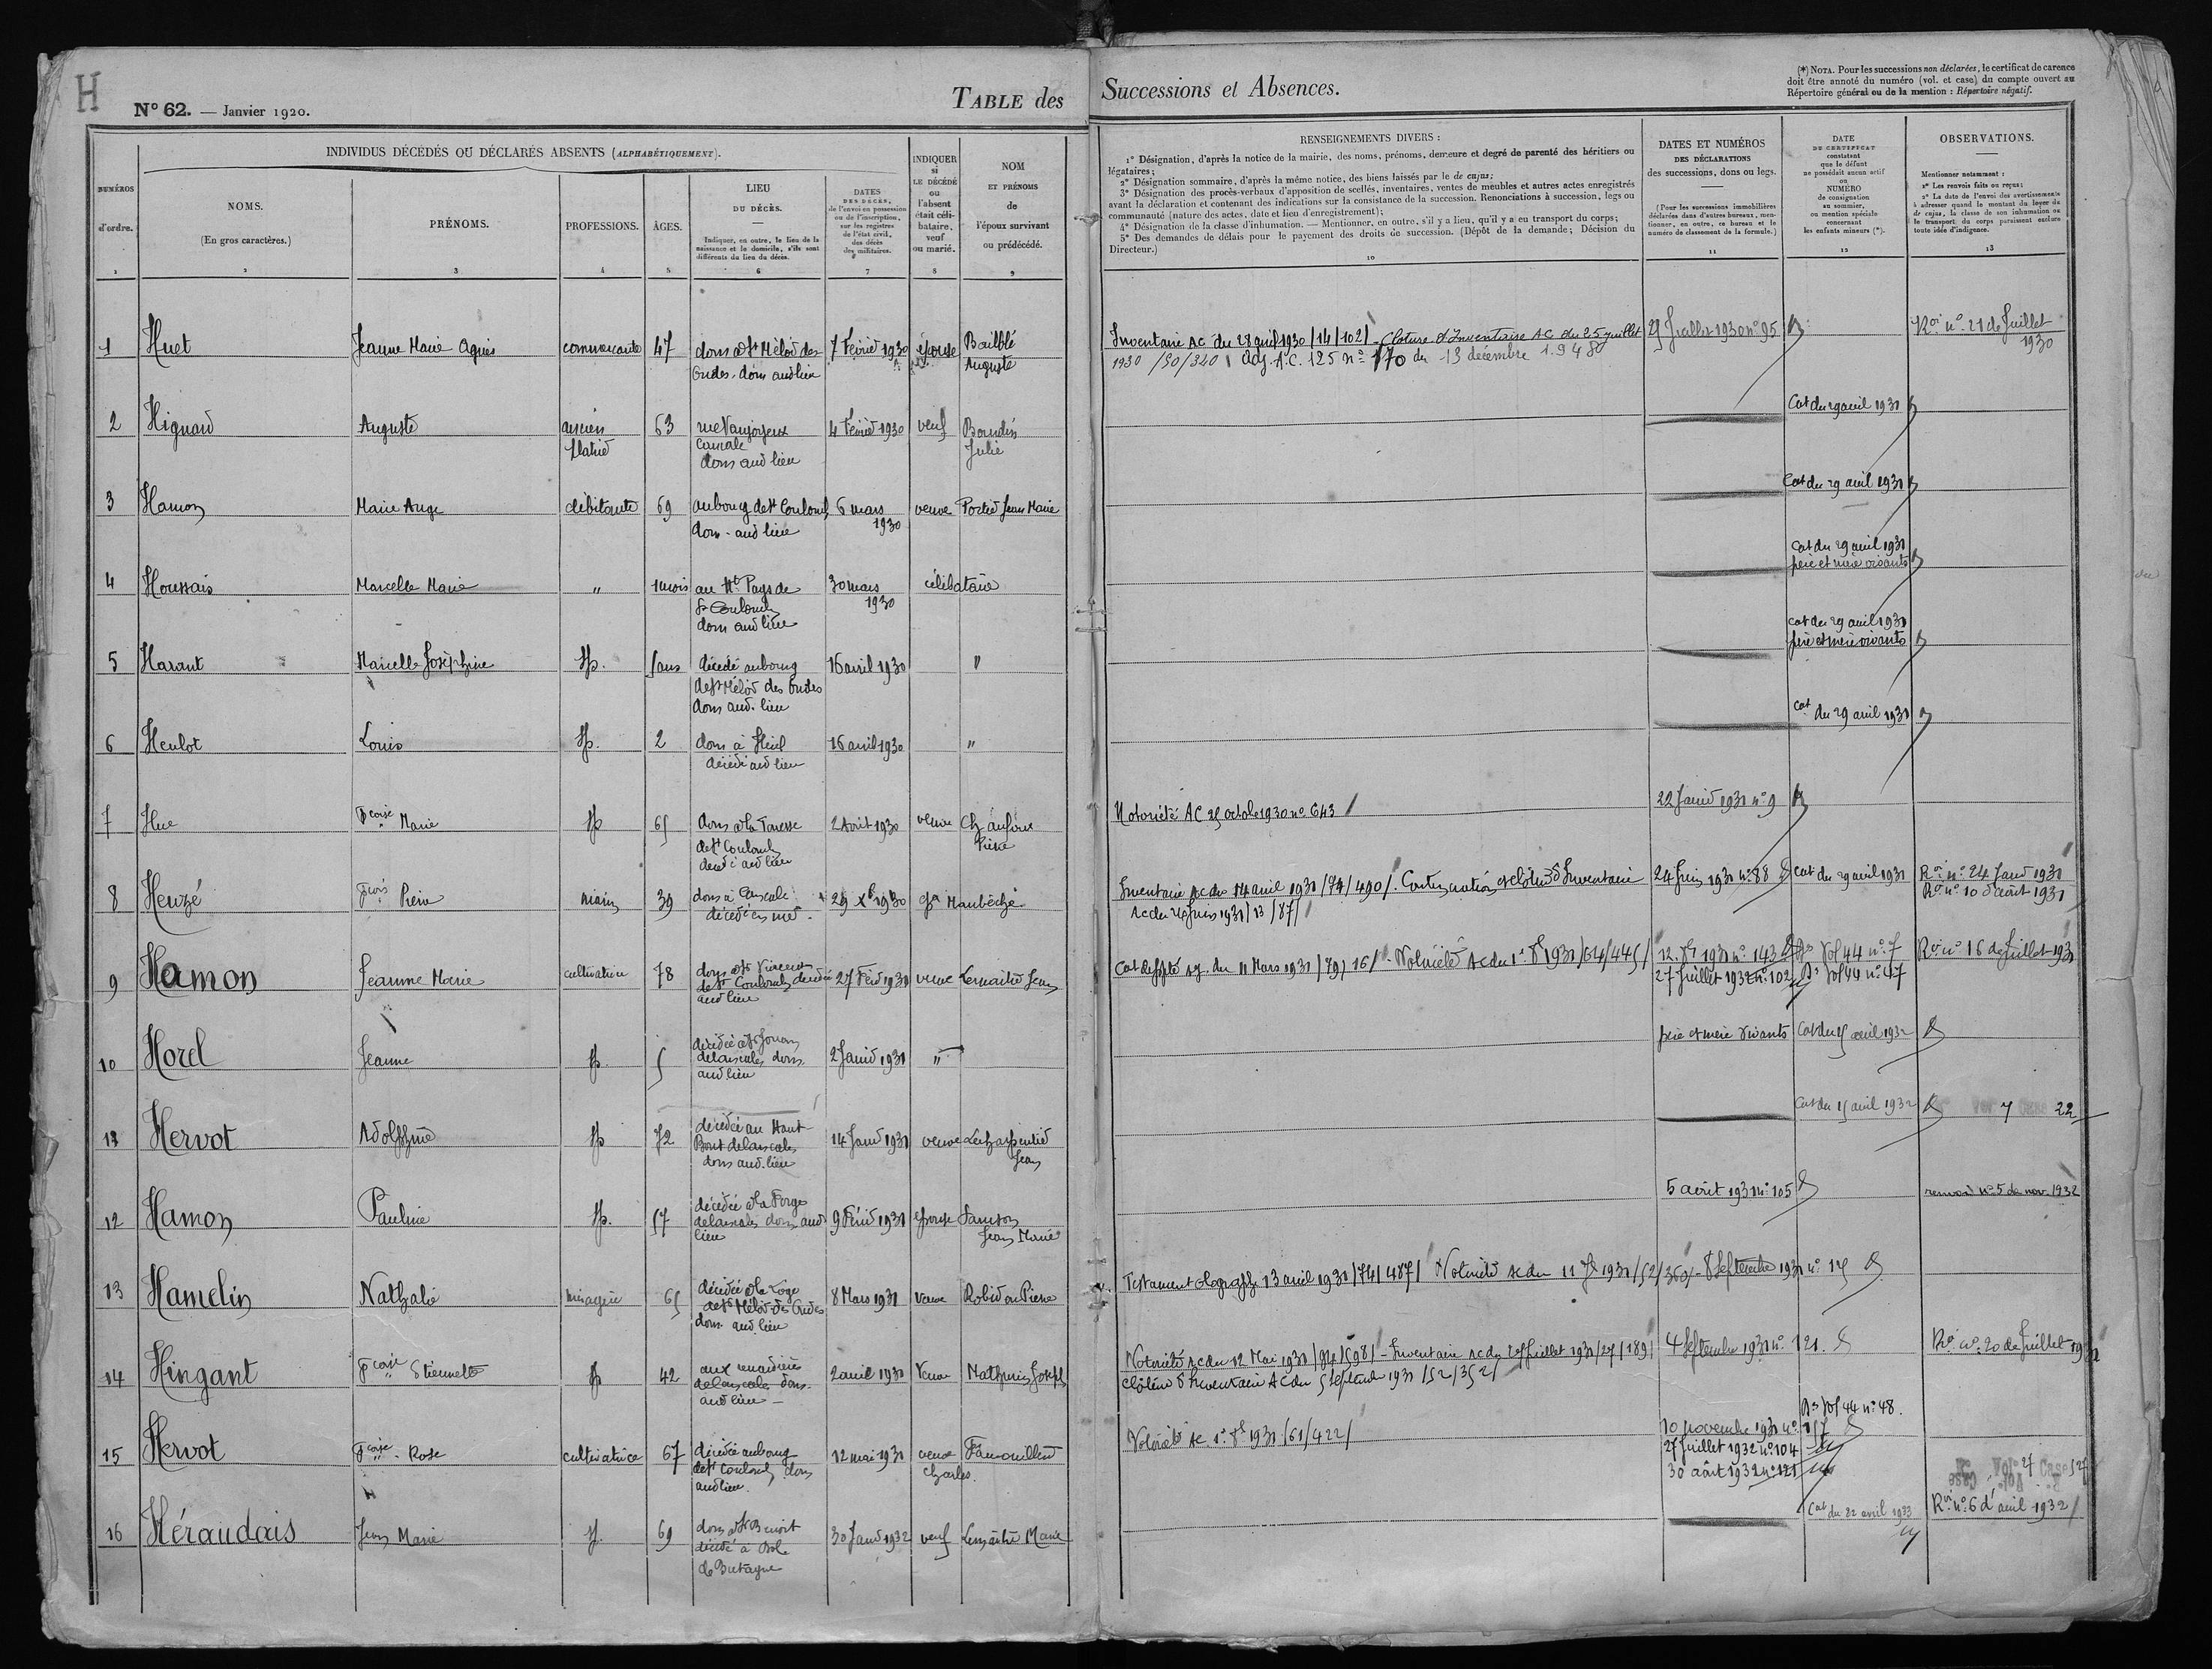 H
N° 62. — Janvier 1920.
TABLE des Successions et Absences.
(*) NOTA. Pour les successions non déclarées, le certificat de carence
doit être annoté du numéro (vol. et case) du compte ouvert au
Répertoire général ou de la mention : Répertoire négatif.
NUMÉROS d'ordre.
INDIVIDUS DÉCÉDÉS OU DÉCLARÉS ABSENTS (ALPHABÉTIQUEMENT).
NOMS.
(En gros caractères.)
PRÉNOMS.
PROFESSIONS.
ÂGES.
LIEU
DU DÉCÈS.
Indiquer, en outre, le lieu de la
naissance et le domicile, s'ils sont
différents du lieu du décès.
DATES
DES DÉCÈS,
de l'envoi en possession
ou de l'inscription,
sur les registres
de l'état civil,
des décès
des militaires.
INDIQUER
si
LE DÉCÉDÉ
ou
l'absent
était céli-
bataire,
veuf
ou marié.
NOM
ET PRÉNOMS
de
l'époux survivant
ou prédécédé.
RENSEIGNEMENTS DIVERS :
1° Désignation, d'après la notice de la mairie, des noms, prénoms, demeure et degré de parenté des héritiers ou
légataires;
2° Désignation sommaire, d'après la même notice, des biens laissés par le de cujus;
3° Désignation des procès-verbaux d'apposition de scellés, inventaires, ventes de meubles et autres actes enregistrés
avant la déclaration et contenant des indications sur la consistance de la succession. Renonciations à succession, legs ou
communauté (nature des actes, date et lieu d'enregistrement);
4° Désignation de la classe d'inhumation. — Mentionner, en outre, s'il y a lieu, qu'il y a eu transport du corps;
5° Des demandes de délais pour le payement des droits de succession. (Dépôt de la demande; Décision du
Directeur.)
DATES ET NUMÉROS
DES DÉCLARATIONS
des successions, dons ou legs.
(Pour les successions immobilières
déclarées dans d'autres bureaux, men-
tionner, en outre, ce bureau et le
numéro de classement de la formule.)
DATE
DU CERTIFICAT
constatant
que le défunt
ne possédait aucun actif
ou
NUMÉRO
de consignation
au sommier,
ou mention spéciale
concernant
les enfants mineurs (*).
OBSERVATIONS.
Mentionner notamment :
1° Les renvois faits ou reçus;
2° La date de l'envoi des avertissements
à adresser quand le montant du loyer du
de cujus, la classe de son inhumation ou
le transport du corps paraissent exclure
toute idée d'indigence.
1 2 3 4 5 6 7 8 9 10 11 12 13
1 Huet Jeanne Marie Agnès commerçante 47 dom à St Méloir des 7 Février 1930 épouse Bailblé
Ondes. dom aud lieu Auguste
Inventaire AC du 28 avril 1930 /14/102/ Cloture d'Inventaire AC du 25 juillet 29 Juillet 1930 n° 95 Roi n° 21 de Juillet
1930 /50/320 Adj. A.C. 125 n° 170 du 13 décembre 1948 1930
2 Hignard Auguste ancien 63 4 Février 1930 veuf Baudin
Cancale Julie
dom aud lieu
Cat du 29 avril 1931
3 Hamon Marie Ange débitante 69 au bourg de St Coulomb 6 mars veuve Portier Jean Marie
dom. aud lieu 1930
Cat du 29 avril 1931
4 Houssais Marcelle Marie " 1 mois au Ht Pays de 30 mars célibataire
St Coulomb 1930
dom aud lieu
Cat du 29 avril 1931
père et mère vivants
5 Harant Marcelle Joséphine sp. 5 ans décédé au bourg 16 avril 1930 "
de St Méloir des Ondes
dom aud. lieu
cat du 29 avril 1931
père et mère vivants
6 Heulot Louis sp. 2 dom à 16 avril 1930 "
décédé aud lieu
cat du 29 avril 1931
7 Hue Fçoise Marie sp 65 dom à la 2 Août 1930 veuve
de St Coulomb Pierre
décédé aud lieu
Notoriété AC 25 octobre 1930 n° 643 22 Janvier 1931 n° 9
8 Heuzé Fçois Pierre marin 39 dom à Cancale 29 Xbre 1930 Maubèche
décédé en mer
Inventaire AC du 14 avril 1931 /74/490/. Continuation et clôture d'Inventaire 24 Juin 1931 n° 88 Cat du 29 avril 1931 Roi n° 24 Janv 1931
AC du 24 Juin 1931 /13/87/ Roi n° 10 d'août 1931
9 Hamon Jeanne Marie cultivatrice 78 dom à St Vincent 27 Févr 1931 veuve Lemaitre Jean
de St Coulomb décédée
aud lieu
12 1931 n° 143 Vol 44 n° 7 Roi n° 16 de Juillet 1931
27 Juillet 1932 n° 102 Vol 44 n° 47
10 Horel Jeanne sp. 5 décédée à St Jouan 2 Janvier 1931 "
de Cancale dom.
aud lieu
père et mère vivants Cat du 15 avril 1932
11 Hervot Adolphine sp 72 décédée au Haut 14 Janv 1931 veuve Lecharpentier
Bout de Cancale Jean
dom aud. lieu
Cat du 15 avril 1932 7 22
12 Hamon Pauline sp. 57 décédée à la Forge 9 Févrir 1931 épouse Samson
de Cancale dom aud Jean Marie
lieu
5 août 1931 n° 105 renvoi n° 5 de nov. 1932
13 Hamelin Nathalie ménagère 65 décédée à la Loge 8 Mars 1931 veuve Robidou Pierre
de St Méloir des Ondes
dom. aud lieu
Testament olographe 13 avril 1931 /74/487/ Notoriété AC du 11 1931 /52/360/ - 8 Septembre 1931 n°
14 Hingant Fçoise Etiennette sp 42 2 avril 1931 Veuve Mathurin Joseph
de Cancale dom.
aud lieu
Notoriété AC du 12 Mai 1931 /94/598/ - Inventaire AC du 25 Juillet 1931 /27/189/ 4 Septembre 1931 n° 121. Roi n° 20 de Juillet 1931
Clôture d'Inventaire AC du 5 Septembre 1931 /52/352/
15 Hervot Fçoise Rose cultivatrice 67 décédée au bourg 12 mai 1931 veuve
de St Coulomb dom Charles.
aud lieu.
Notoriété AC 1931 /61/422/ 10 novembre 1931 n° 157 Vol 44 n° 48.
27 Juillet 1932 n° 104
30 août 1932 n° 121 Vol 27 Case 527
16 Héraudais Jean Marie 69 dom à St Benoit 30 Janv 1932 veuf Lemaitre Marie
décédé à Dol
de Bretagne
Cat du 22 avril 1933 Roi n° 6 d'avril 1932